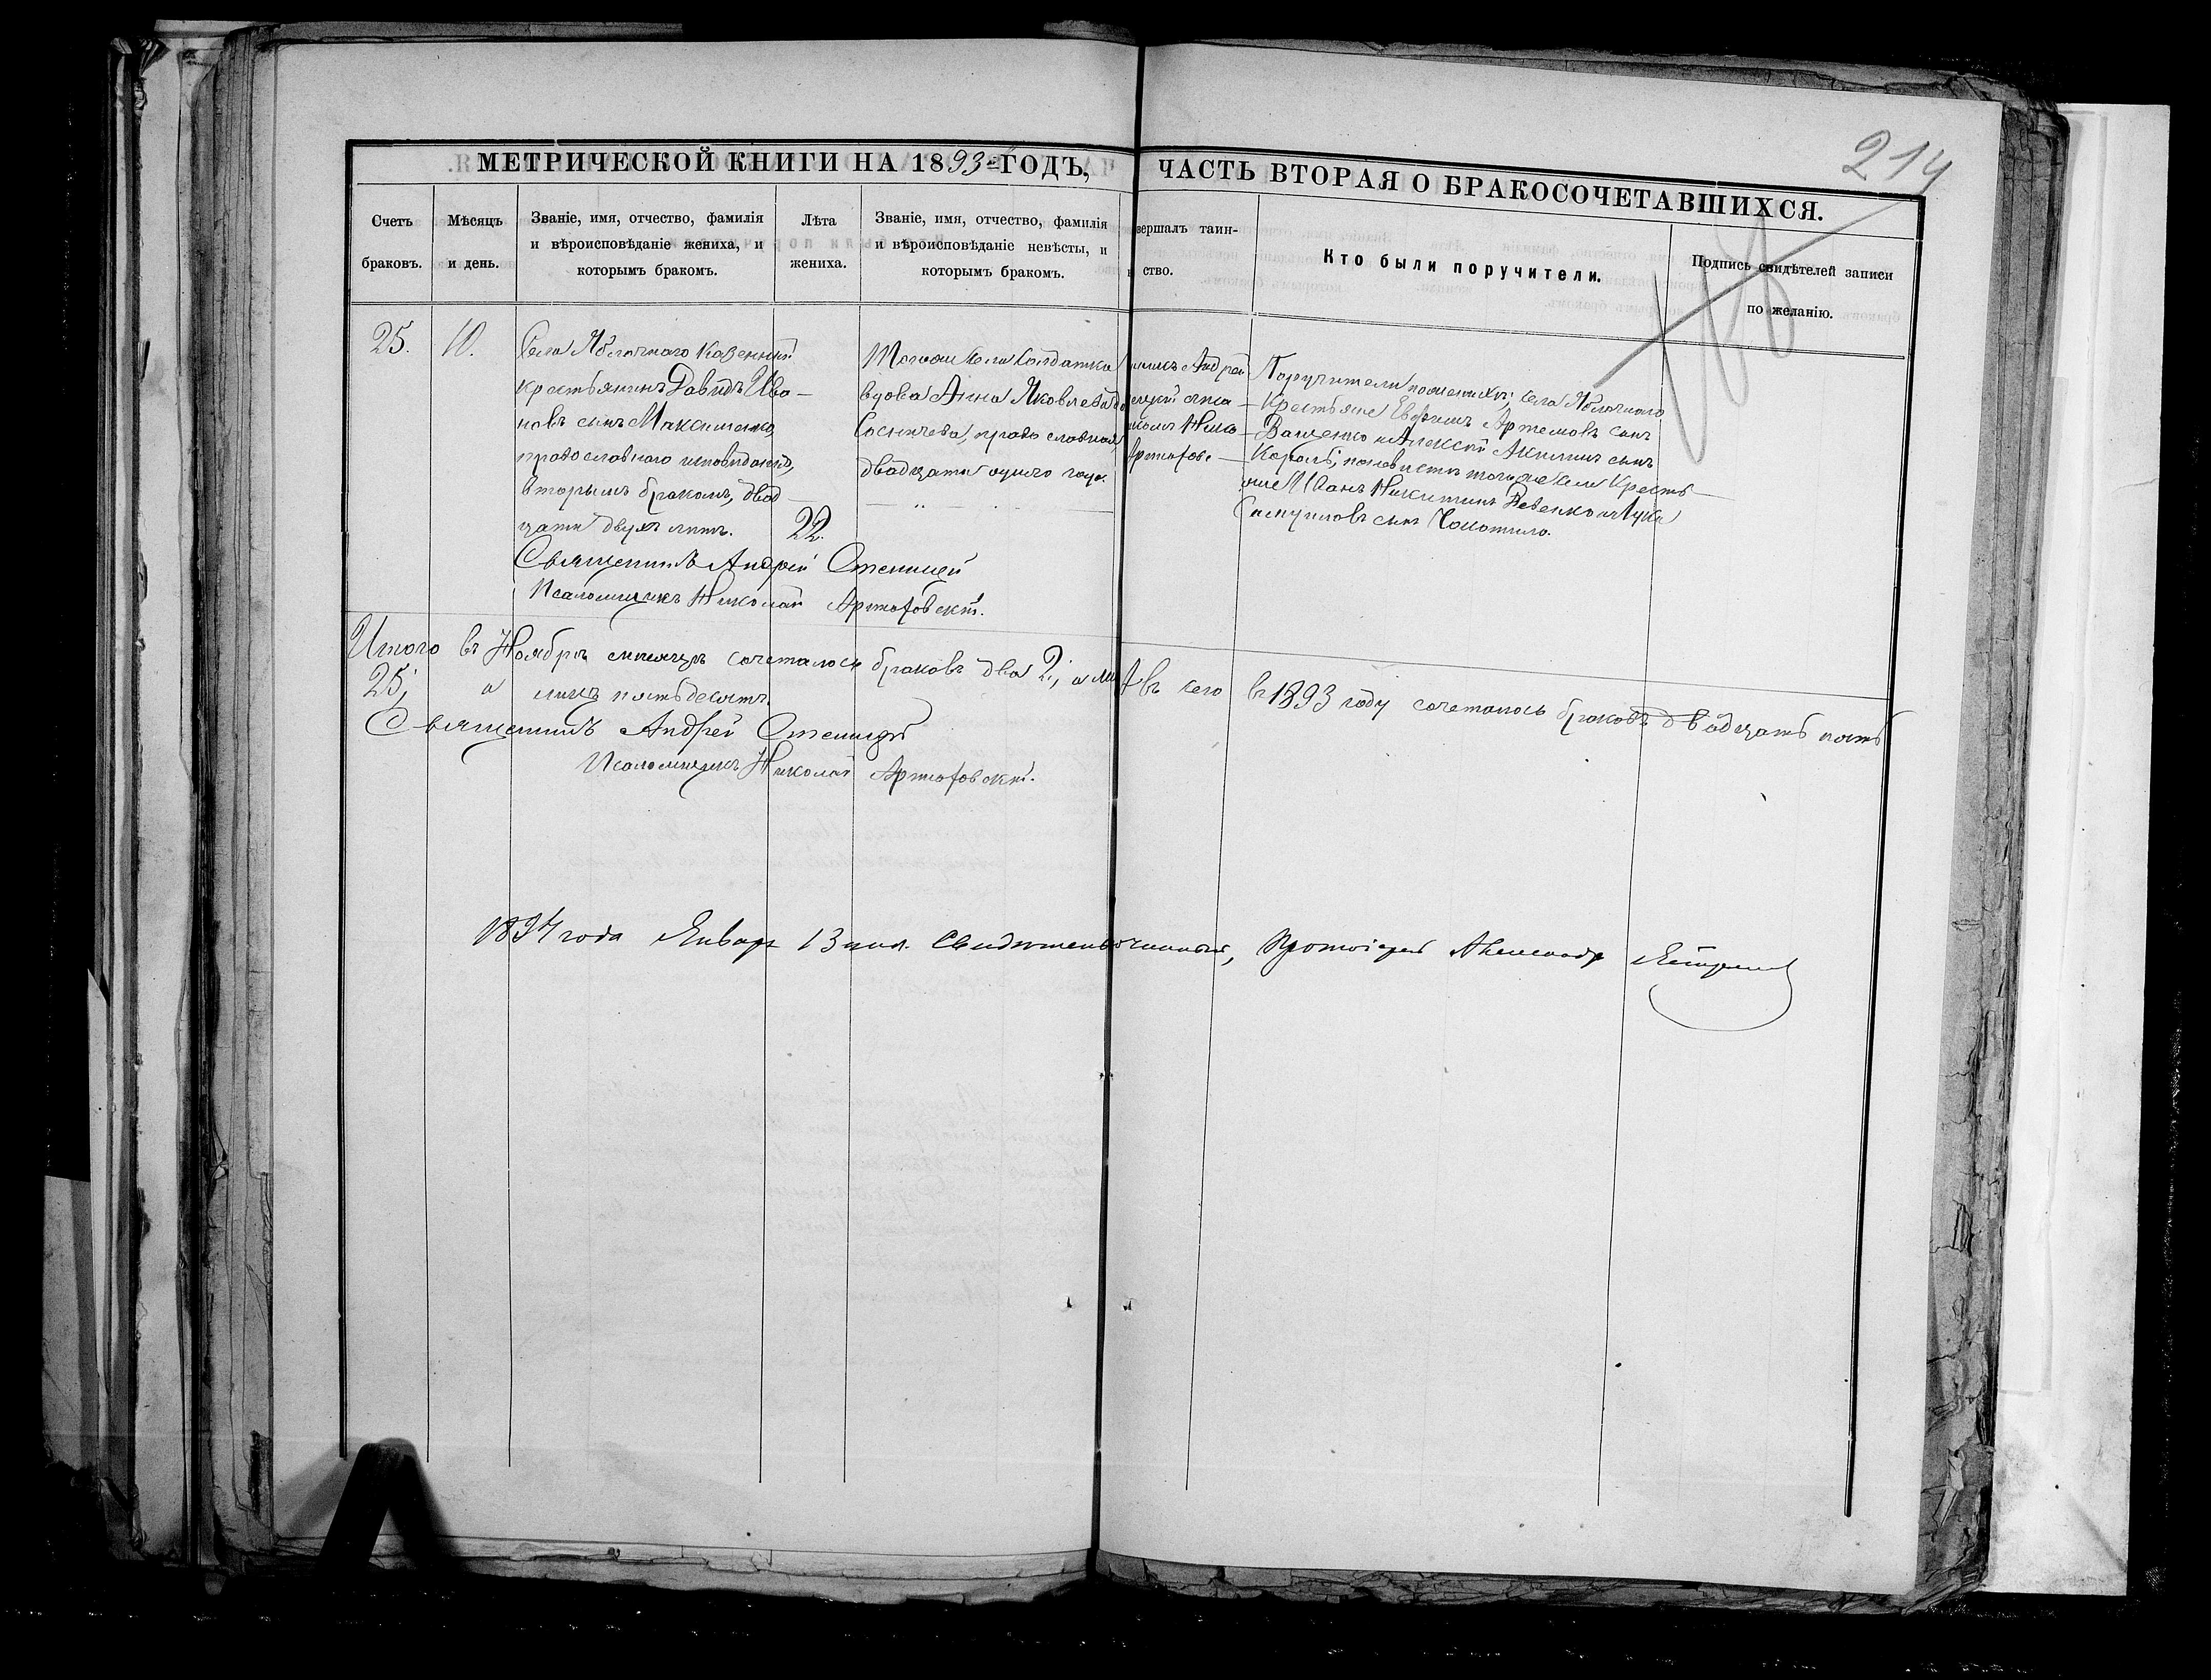 214
МЕТРИЧЕСКОЙ КНИГИ НА 1893 ГОДЪ,
ЧАСТЬ ВТОРАЯ О БРАКОСОЧЕТАВШИХСЯ.
Счетъ
браковъ.
Мѣсяцъ
и день.
Званіе, имя, отчество, фамилія
и вѣроисповѣданіе жениха, и
которымъ бракомъ.
Лѣта
жениха.
Званіе, имя, отчество, фамилія
и вѣроисповѣданіе невѣсты, и
которымъ бракомъ.
вершалъ таин-
ство.
Кто были поручители.
Подпись свидѣтелей записи
по желанію.
25.
10.
Села Яблочнаго Казенный
крестьянинъ Давидъ Ива-
новъ сынъ Максименко,
православнаго исповѣданія,
вторымъ бракомъ, двад-
цати двухъ лѣтъ.
22.
Тогоже села солдатка
вдова Анна Яковлева
православная,
двадцати одного года.
Андрей
комъ Нико-
Артюхов-
Поручители по женихѣ; села Яблочнаго
Крестьяне Евфимъ Артемовъ сынъ
Ващенко и Алексѣй Акимовъ сынъ
Король; по невѣстѣ тогоже села Кресть-
яне Иванъ Никитинъ Ревенко и Лука
Самуиловъ сынъ
Священникъ Андрей
Псаломщикъ Николай Артюховскій.
Итого въ Ноябрѣ мѣсяцѣ сочеталось браковъ два 2; а
всего въ 1893 году сочеталось браковъ двадцать пять
25; а лицъ пятьдесятъ.
Священникъ Андрей
Псаломщикъ Николай Артюховскій.
1894 года Января 13 дня. Протоіерей Александръ